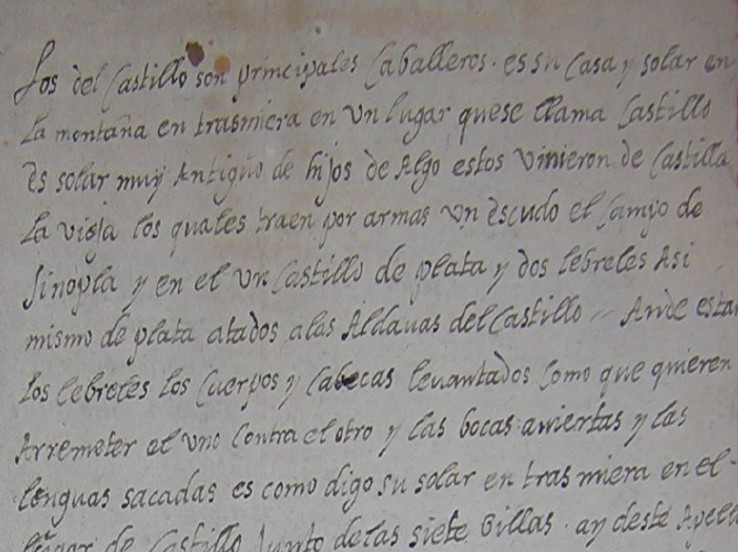 Los del Castillo son principales Caballeros. es su Casa y solar en
La montaña en trasmiera en Un lugar quese llama Castillo
es solar muy Antigüo de hijos de Algo estos Vinieron de Castilla
La vieja los quales traen por armas Un escudo el Campo de
Sinopla y en el Un Castillo de plata y dos lebreles Asi
mismo de plata atados alas Aldauas del Castillo - Ande estar
los lebreles los Cuerpos y Cabecas leuantados Como que quieren
Arremeter el uno Contra el otro y las bocas awiertas y las
lenguas sacadas es como digo su solar en tras miera en el-
lugar de Castillo Junto delas siete Billas. ay deste Apell